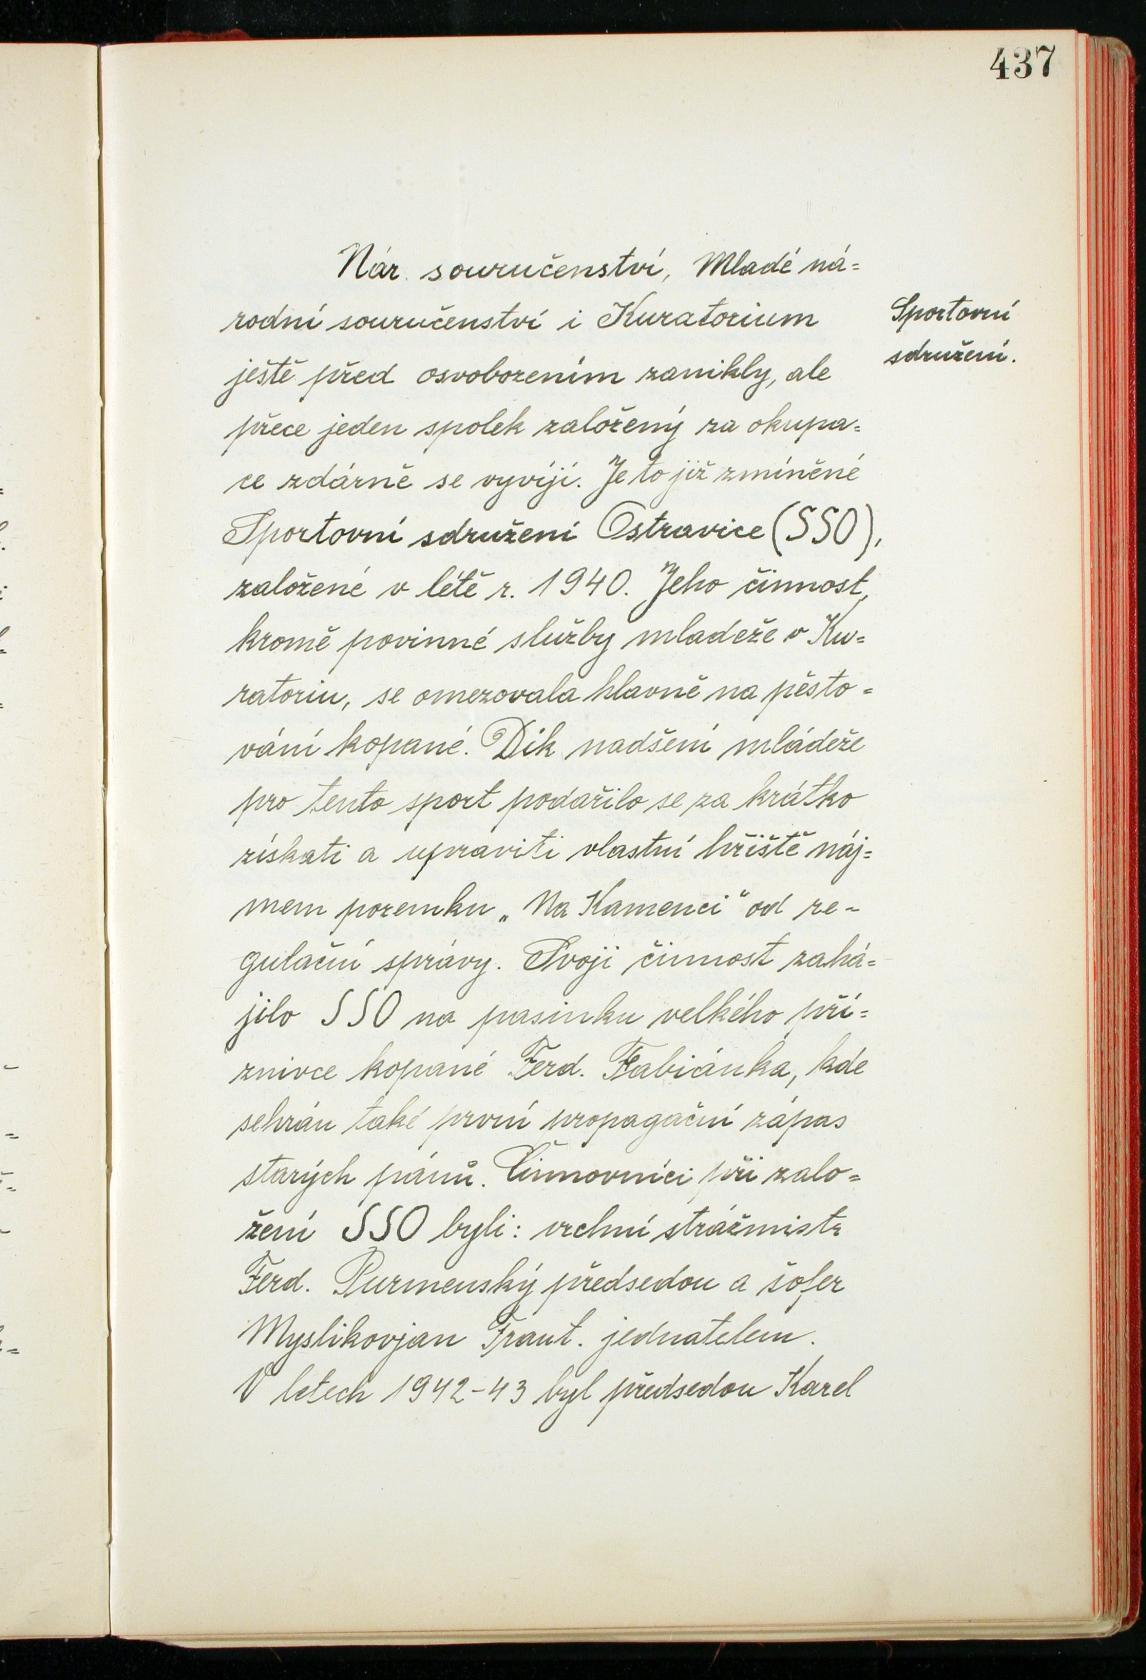 437
Nár. souručenství, Mladé ná=
rodní souručenství i Kuratorium
ještě před osvobozením zanikly, ale
přece jeden spolek založený za okupa=
ce zdárně se vyvíjí. Je to již zmíněné
Sportovní sdružení Ostravice (SSO),
založené v létě r. 1940. Jeho činnost,
kromě povinné služby mladeže v Ku=
ratoriu, se omezovala hlavně na pěsto=
vání kopané. Dík nadšení mládeže
pro tento sport podařilo se za krátko
získati a upraviti vlastní hřiště náj=
mem pozemku „Na Kamenci" od re-
gulační správy. Svoji činnost zahá=
jilo SSO na pasinku velkého pří=
znivce kopané Ferd. Fabiánka, kde
sehrán také první propagační zápas
starých pánů. Činovníci při zalo=
žení SSO byli: vrchní strážmistr
Ferd. Purmenský předsedou a šofer
Myslikovjan Frant. jednatelem.
V letech 1942-43 byl předsedou Karel
Sportovní
sdružení.